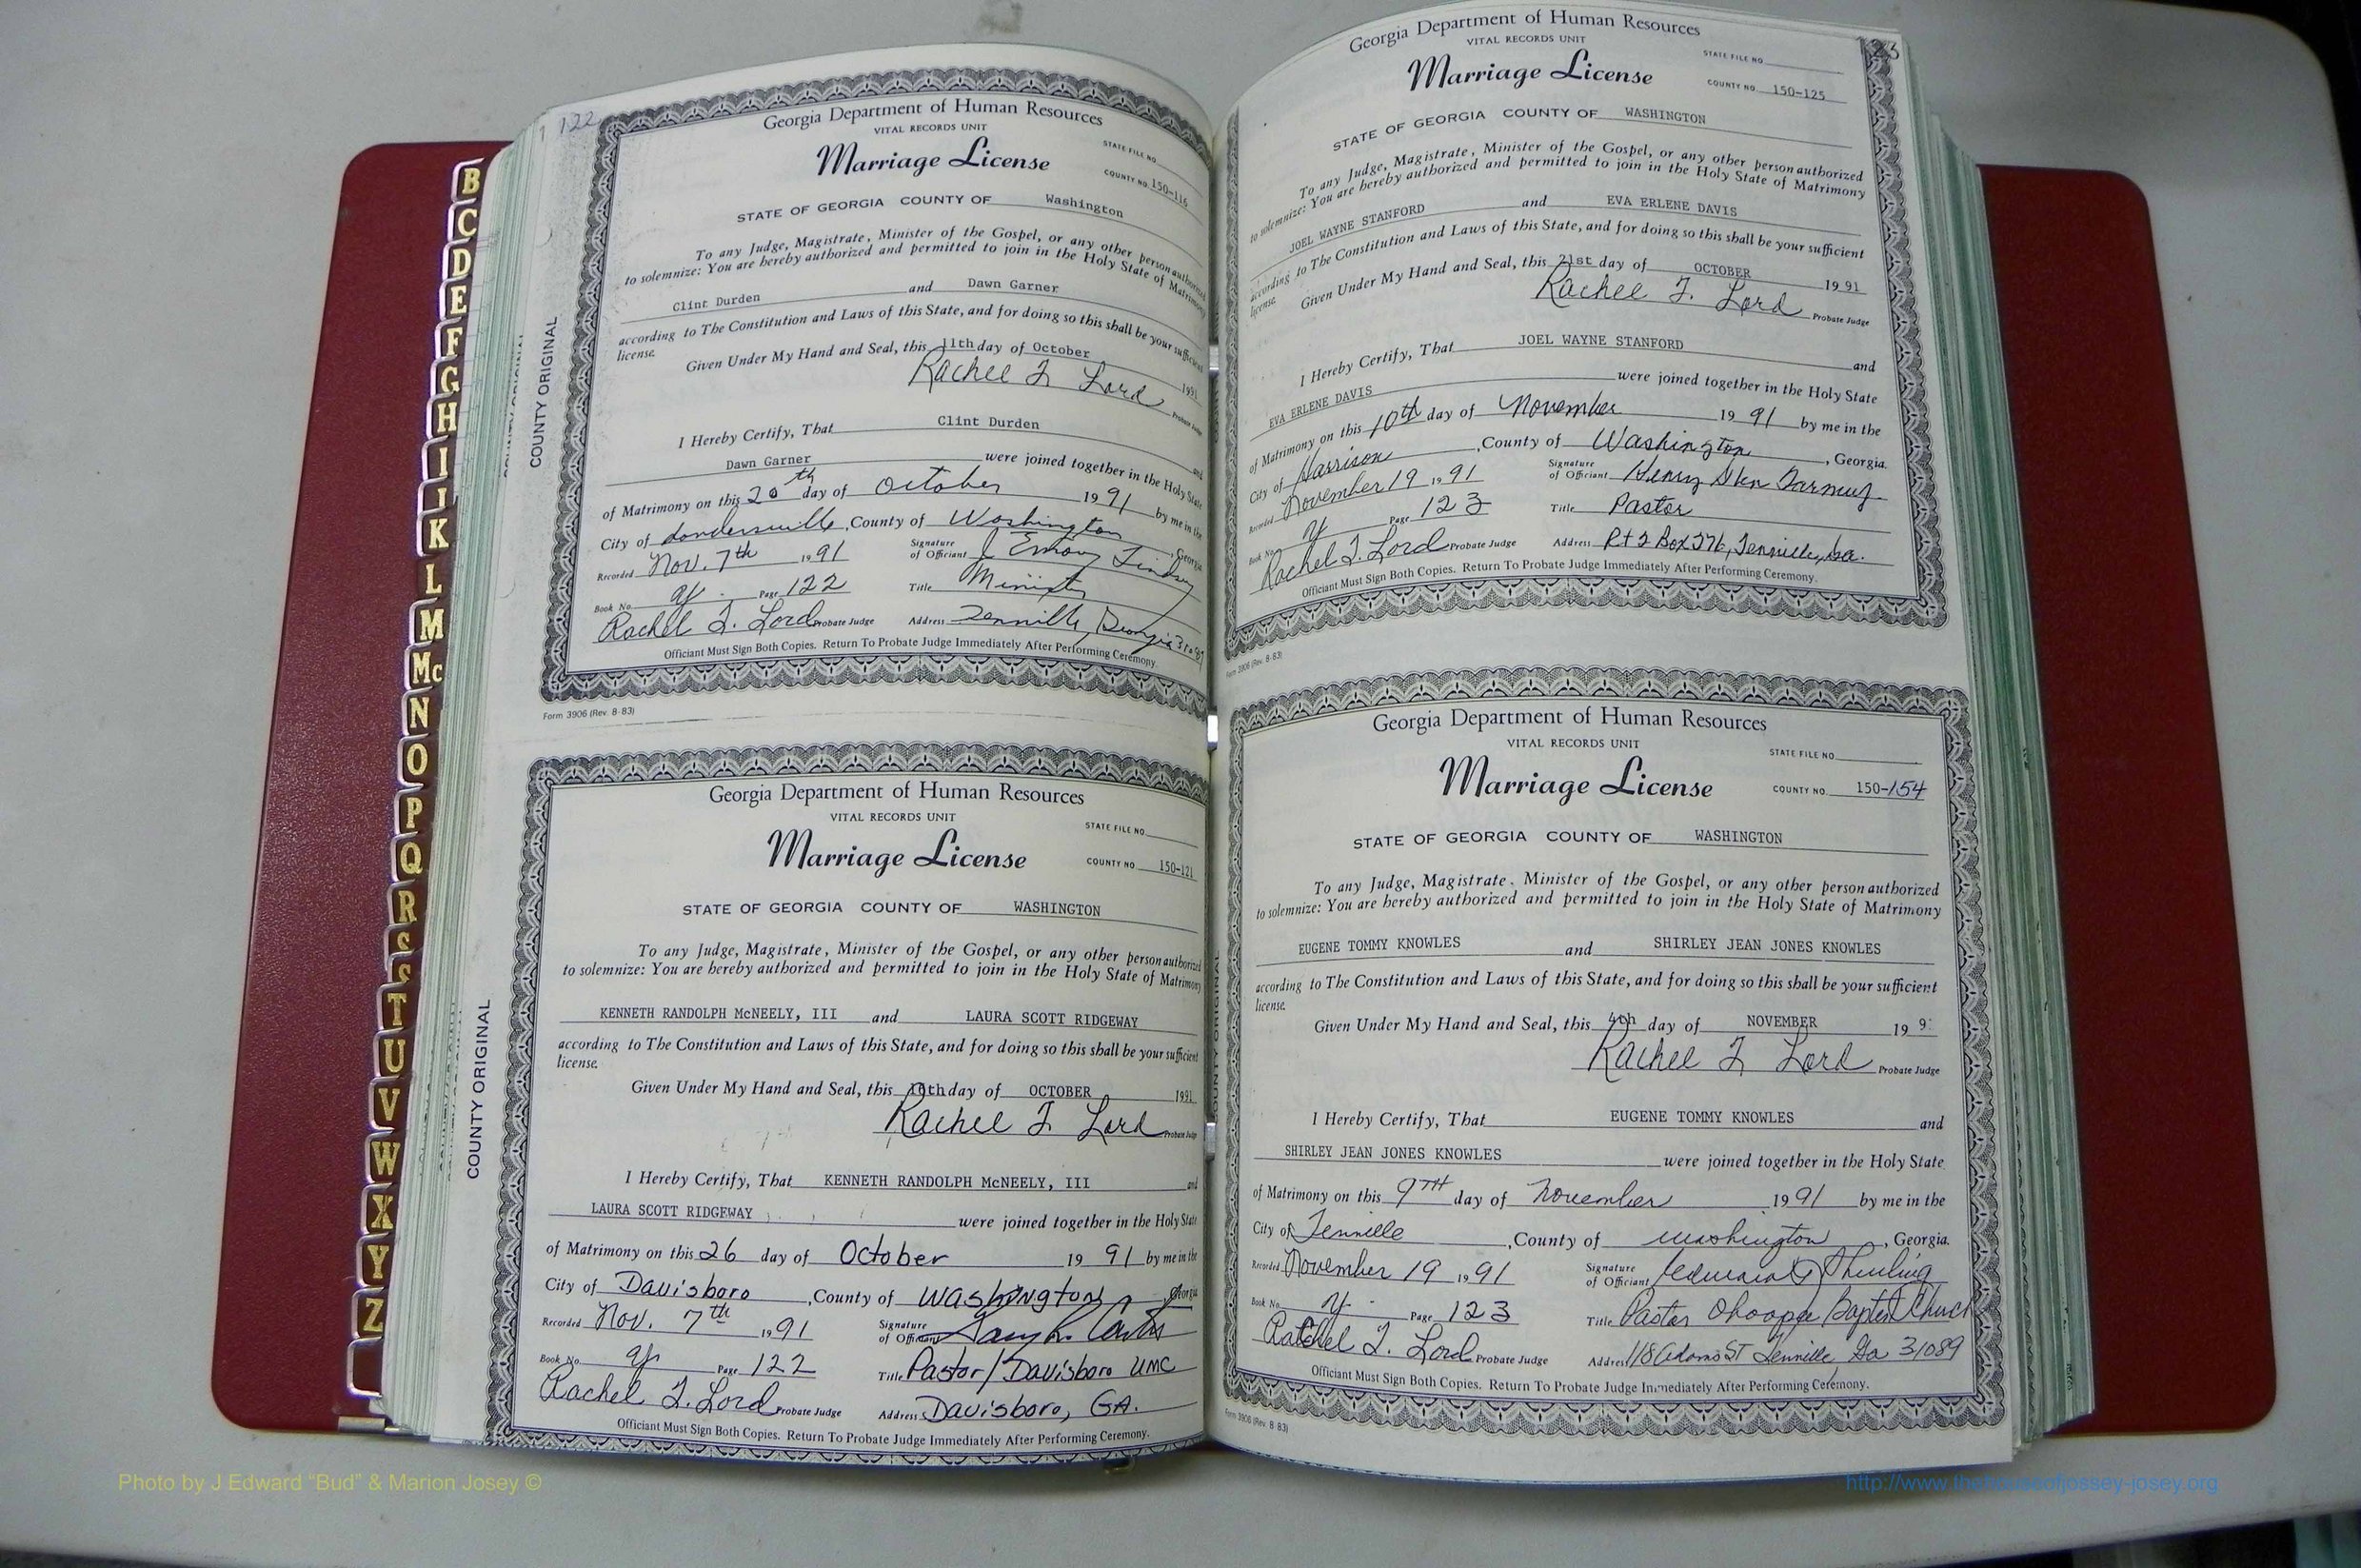 122
Georgia Department of Human Resources
VITAL RECORDS UNIT
Marriage License
STATE FILE NO.
COUNTY NO. 150-116
STATE OF GEORGIA COUNTY OF Washington
To any Judge, Magistrate, Minister of the Gospel, or any other person authorized
to solemnize: You are hereby authorized and permitted to join in the Holy State of Matrimony
Clint Durden and Dawn Garner
according to The Constitution and Laws of this State, and for doing so this shall be your sufficient
license.
Given Under My Hand and Seal, this 11th day of October 1991
Rachel T. Lord Probate Judge
I Hereby Certify, That Clint Durden and
Dawn Garner were joined together in the Holy State
of Matrimony on this 20th day of October 1991 by me in the
City of Sandersville, County of Washington, Georgia
Recorded Nov. 7th 1991
Signature of Officiant J Emory Lindsey
Book No. Page 122
Title Minister
Rachel T. Lord Probate Judge
Address Tennille, Georgia
Officiant Must Sign Both Copies. Return To Probate Judge Immediately After Performing Ceremony.
Form 3906 (Rev. 8-83)
COUNTY ORIGINAL
Georgia Department of Human Resources
VITAL RECORDS UNIT
Marriage License
STATE FILE NO.
COUNTY NO. 150-121
STATE OF GEORGIA COUNTY OF WASHINGTON
To any Judge, Magistrate, Minister of the Gospel, or any other person authorized
to solemnize: You are hereby authorized and permitted to join in the Holy State of Matrimony
KENNETH RANDOLPH McNEELY, III and LAURA SCOTT RIDGEWAY
according to The Constitution and Laws of this State, and for doing so this shall be your sufficient
license.
Given Under My Hand and Seal, this day of OCTOBER 1991
Rachel T. Lord Probate Judge
I Hereby Certify, That KENNETH RANDOLPH McNEELY, III and
LAURA SCOTT RIDGEWAY were joined together in the Holy State
of Matrimony on this 26 day of October 1991 by me in the
City of Davisboro, County of Washington, Georgia
Recorded Nov. 7th 1991
Signature of Officiant
Book No. Page 122
Title Pastor/Davisboro UMC
Rachel T. Lord Probate Judge
Address Davisboro, GA.
Officiant Must Sign Both Copies. Return To Probate Judge Immediately After Performing Ceremony.
COUNTY ORIGINAL
Georgia Department of Human Resources
VITAL RECORDS UNIT
Marriage License
STATE FILE NO.
COUNTY NO. 150-125
STATE OF GEORGIA COUNTY OF WASHINGTON
To any Judge, Magistrate, Minister of the Gospel, or any other person authorized
to solemnize: You are hereby authorized and permitted to join in the Holy State of Matrimony
JOEL WAYNE STANFORD and EVA ERLENE DAVIS
according to The Constitution and Laws of this State, and for doing so this shall be your sufficient
license.
Given Under My Hand and Seal, this 21st day of OCTOBER 1991
Rachel T. Lord Probate Judge
I Hereby Certify, That JOEL WAYNE STANFORD and
EVA ERLENE DAVIS were joined together in the Holy State
of Matrimony on this 10th day of November 1991 by me in the
City of Harrison, County of Washington, Georgia.
Recorded November 19 1991
Signature of Officiant Henry
Book No. Page 123
Title Pastor
Rachel T. Lord Probate Judge
Address Rt 2 Box 276, Tennille, Ga.
Officiant Must Sign Both Copies. Return To Probate Judge Immediately After Performing Ceremony.
Form 3906 (Rev. 8-83)
Georgia Department of Human Resources
VITAL RECORDS UNIT
Marriage License
STATE FILE NO.
COUNTY NO. 150-154
STATE OF GEORGIA COUNTY OF WASHINGTON
To any Judge, Magistrate, Minister of the Gospel, or any other person authorized
to solemnize: You are hereby authorized and permitted to join in the Holy State of Matrimony
EUGENE TOMMY KNOWLES and SHIRLEY JEAN JONES KNOWLES
according to The Constitution and Laws of this State, and for doing so this shall be your sufficient
license.
Given Under My Hand and Seal, this 4th day of NOVEMBER 199
Rachel T. Lord Probate Judge
I Hereby Certify, That EUGENE TOMMY KNOWLES and
SHIRLEY JEAN JONES KNOWLES were joined together in the Holy State
of Matrimony on this 9TH day of November 1991 by me in the
City of Tennille, County of Washington, Georgia.
Recorded November 19 1991
Signature of Officiant
Book No. Page 123
Title Pastor Ohoopee Baptist Church
Rachel T. Lord Probate Judge
Address 118 Adams ST Tennille, Ga 31089
Officiant Must Sign Both Copies. Return To Probate Judge Immediately After Performing Ceremony.
Form 3906 (Rev. 8-83)
COUNTY ORIGINAL
B
C
D
E
F
G
H
I
K
L
M
Mc
N
O
P
Q
R
S
T
U
V
W
X
Y
Z
Photo by J Edward “Bud” & Marion Josey ©
http://www.thehouseofjossey-josey.org